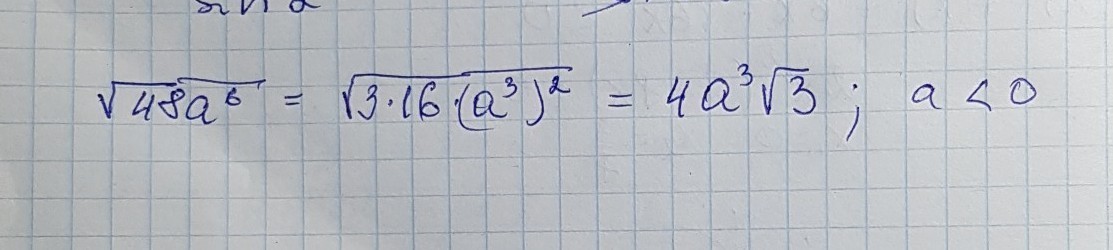 √48a⁶ = √3·16·(a³)² = 4a³√3 ; a < 0